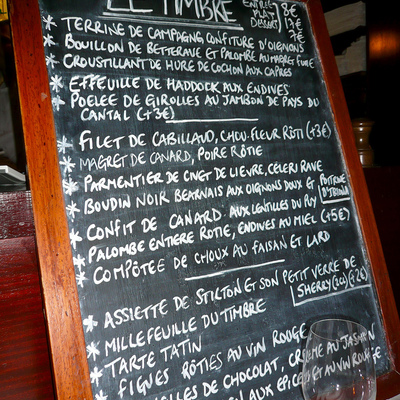 LE TIMBRE
ENTRÉE 8€
PLAT 17€
DESSERT 7€
* TERRINE DE CAMPAGNE CONFITURE D'OIGNONS
* BOUILLON DE BETTERAVE ET PALOMBE AU MAGRET FUMÉ
* CROUSTILLANT DE HURE DE COCHON AUX CAPRES
* EFFEUILLE DE HADDOCK AUX ENDIVES
* POELEE DE GIROLLES AU JAMBON DE PAYS DU
CANTAL (+3€)
* FILET DE CABILLAUD, CHOU-FLEUR RÔTI (+3€)
* MAGRET DE CANARD, POIRE RÔTIE
* PARMENTIER DE CIVET DE LIEVRE, CÉLERI RAVE
* BOUDIN NOIR BEARNAIS AUX OIGNONS DOUX ET
POITRINE D'IBAÏONA
* CONFIT DE CANARD AUX LENTILLES DU PUY
* PALOMBE ENTIERE ROTIE, ENDIVES AU MIEL (+5€)
* COMPÔTÉE DE CHOUX AU FAISAN ET LARD
* ASSIETTE DE STILTON ET SON PETIT VERRE DE
SHERRY (2cl) (+2€)
* MILLEFEUILLE DU TIMBRE
* TARTE TATIN
* FIGUES RÔTIES AU VIN ROUGE
DE CHOCOLAT, CRÈME AU JASMIN
AUX EPICES ET AU VIN ROUGE